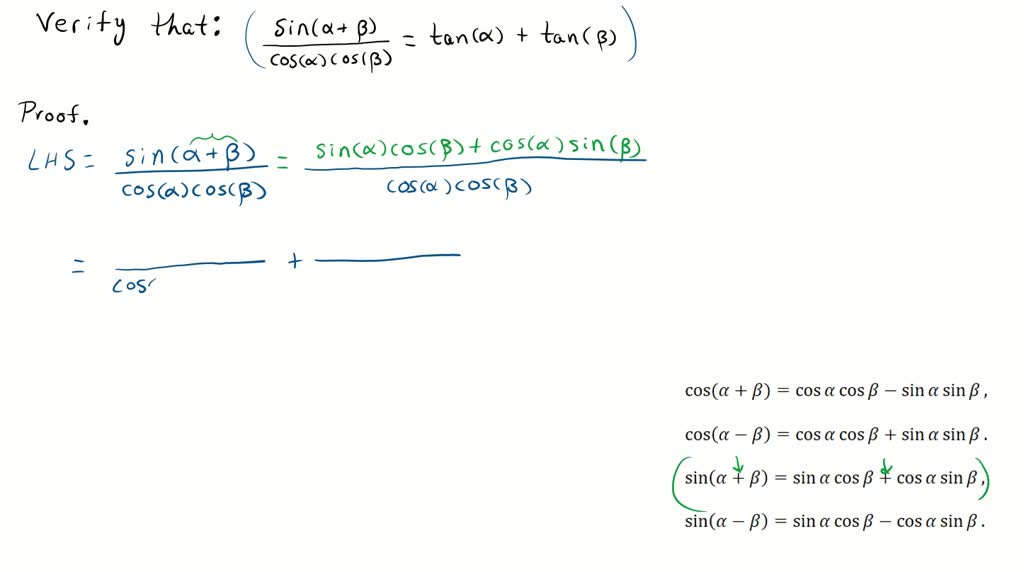 Verify that: ( sin(α+β) / cos(α)cos(β) = tan(α) + tan(β) )
Proof.
LHS = sin(α+β) / cos(α)cos(β) = sin(α)cos(β) + cos(α)sin(β) / cos(α)cos(β)
= / cos( +
cos(α + β) = cos α cos β − sin α sin β ,
cos(α − β) = cos α cos β + sin α sin β .
(sin(α + β) = sin α cos β + cos α sin β ,)
sin(α − β) = sin α cos β − cos α sin β .